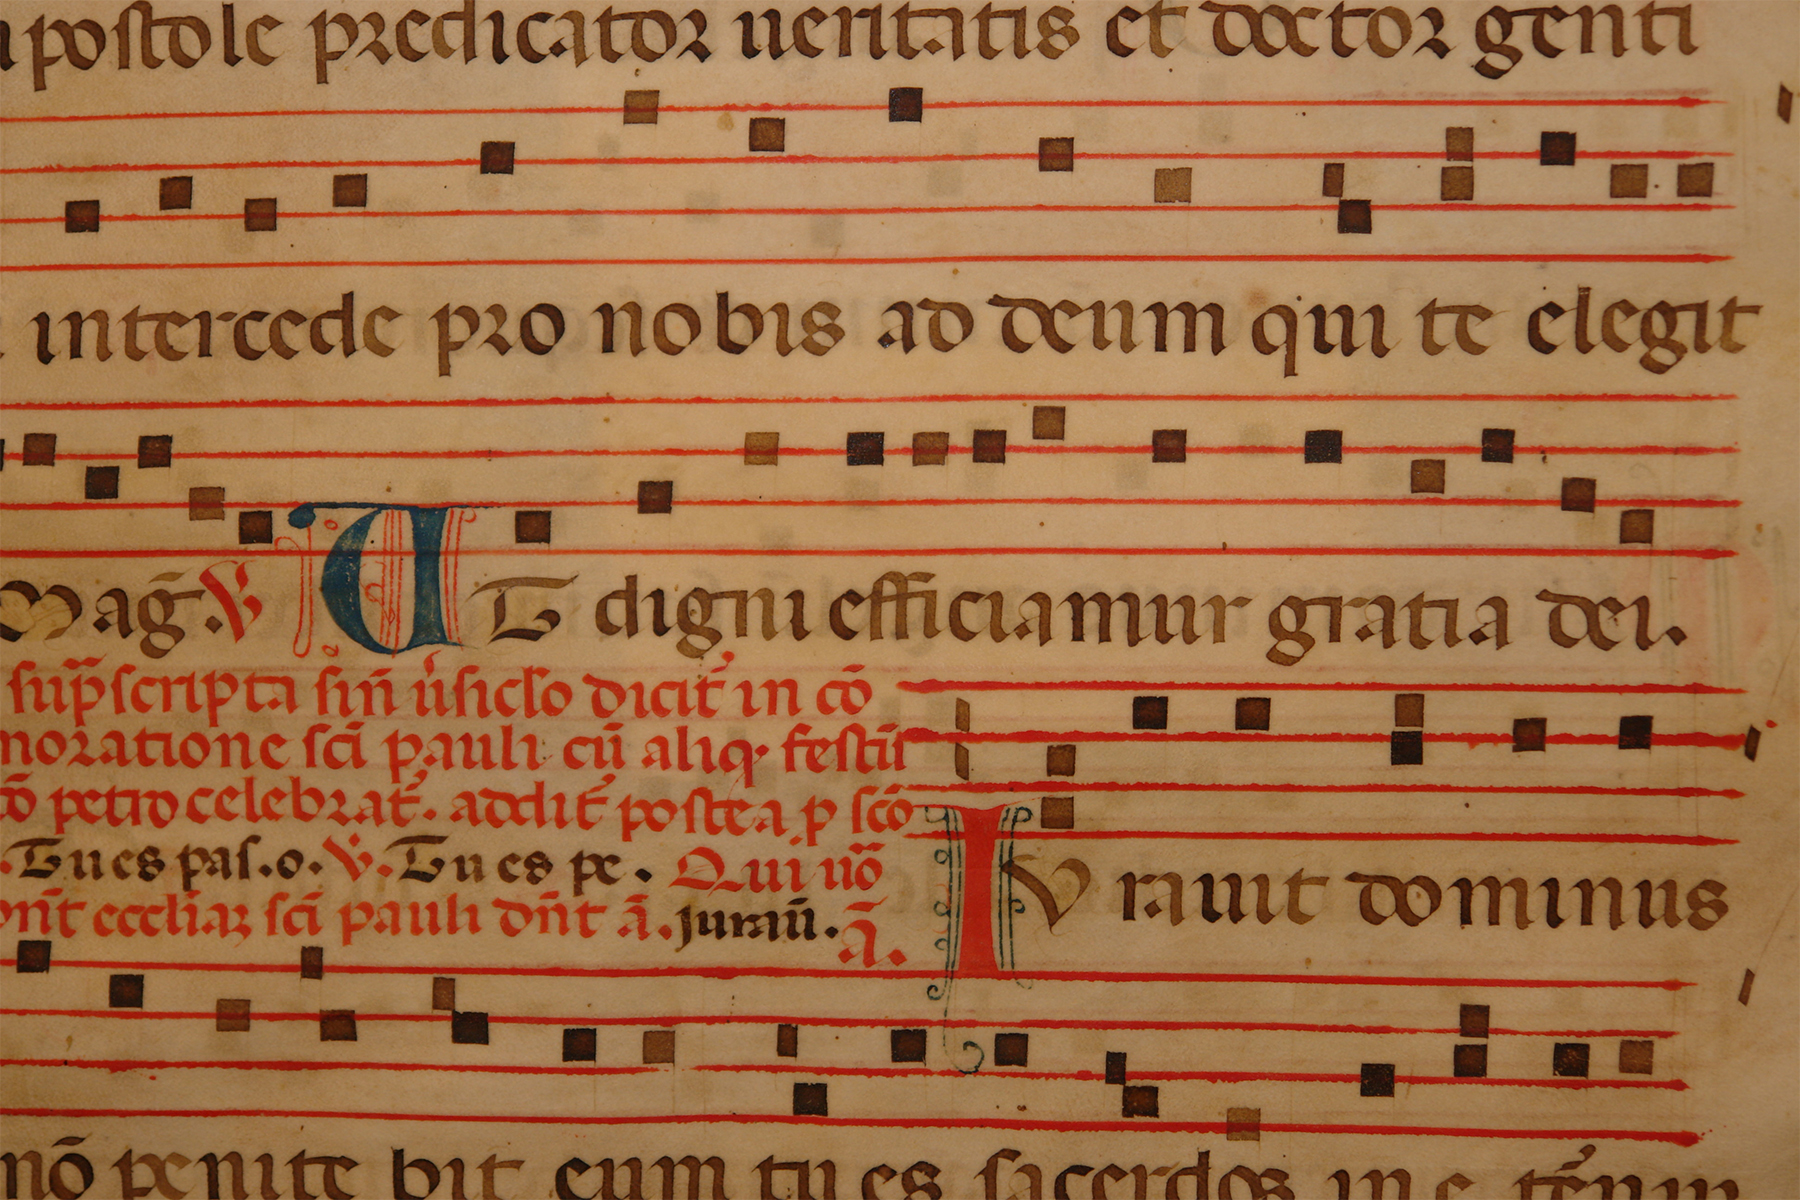 apostole predicator ueritatis et doctor genti
intercede pro nobis ad deum qui te elegit
Mag̃. V̶ UT digni efficiamur gratia dei.
sup̃scripta sin̄ v̓siclo dicit̓ in cō
moratione scī pauli cū aliq festū
cō petro celebrat̓. addit̓ postea p scō
.Tu es pas.o. V̶. Tu es pe. Qui nō
ont eccliaꝝ scī pauli dn̄t ā. jurau̅. ā.
IU rauit dominus
nō penite bit eum tu es sacerdos in e tēnum